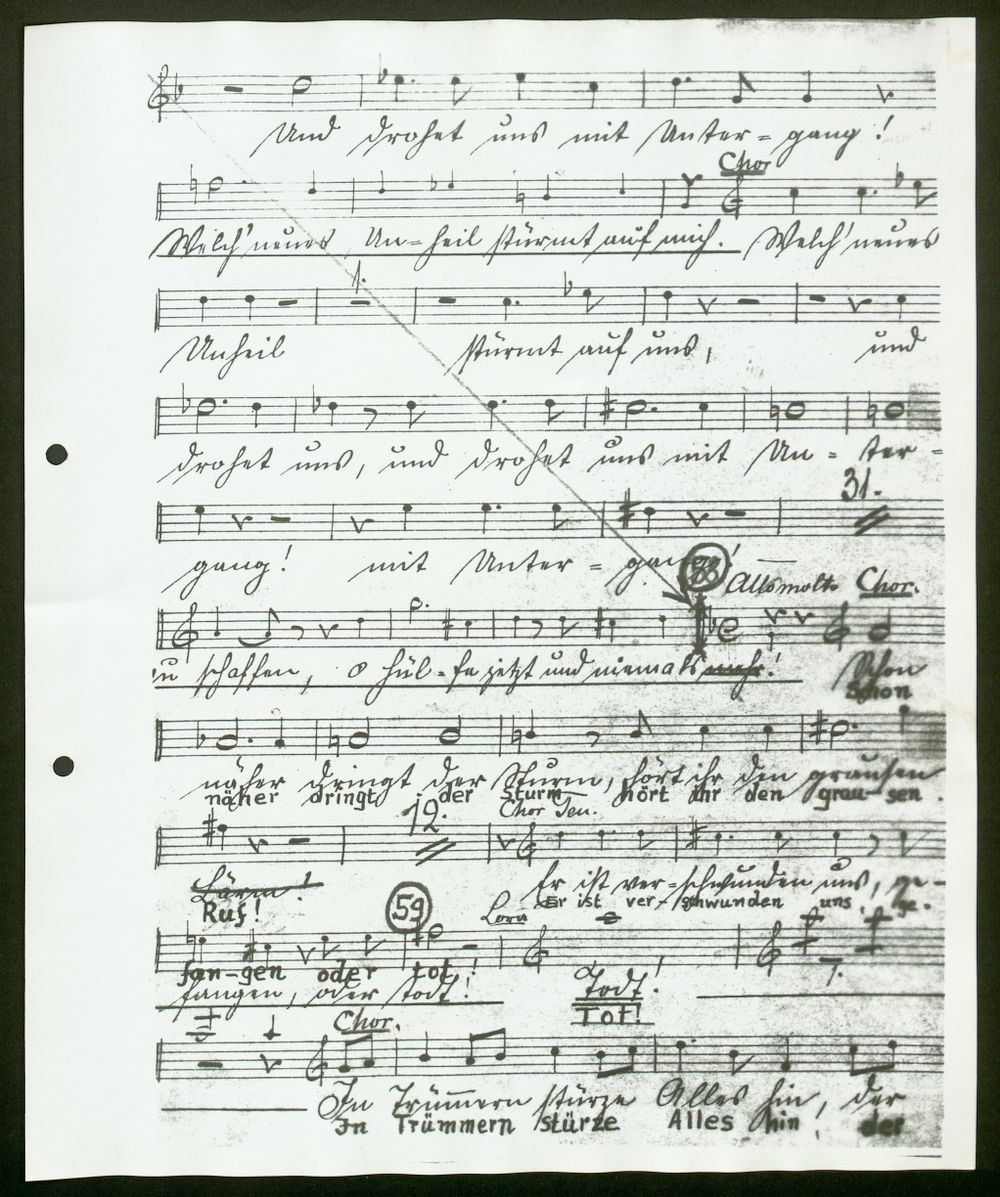 Und drohet uns mit Unter = gang!
Chor
Welch' neues Un = heil stürmt auf mich. Welch' neues
1.
Unheil stürmt auf uns, und
drohet uns, und drohet uns mit Un = ter =
31.
gang! mit Unter = gang!
58 All° molto Chor.
zu schaffen, o Hül = fe jetzt und niemals mehr! Schon
Schon
näher dringt der Sturm, hört ihr den grausen
näher dringt der Sturm hört ihr den grau-sen
12. Chor Ten.
Lärm! Er ist ver = schwunden uns, ge -
Ruf! Er ist ver- schwunden uns, ge-
59 Lora
fan-gen oder tot,!
fangen, oder todt! Todt!
7.
Tot!
Chor.
In Trümmern stürze Alles hin, der
In Trümmern stürze Alles hin, der